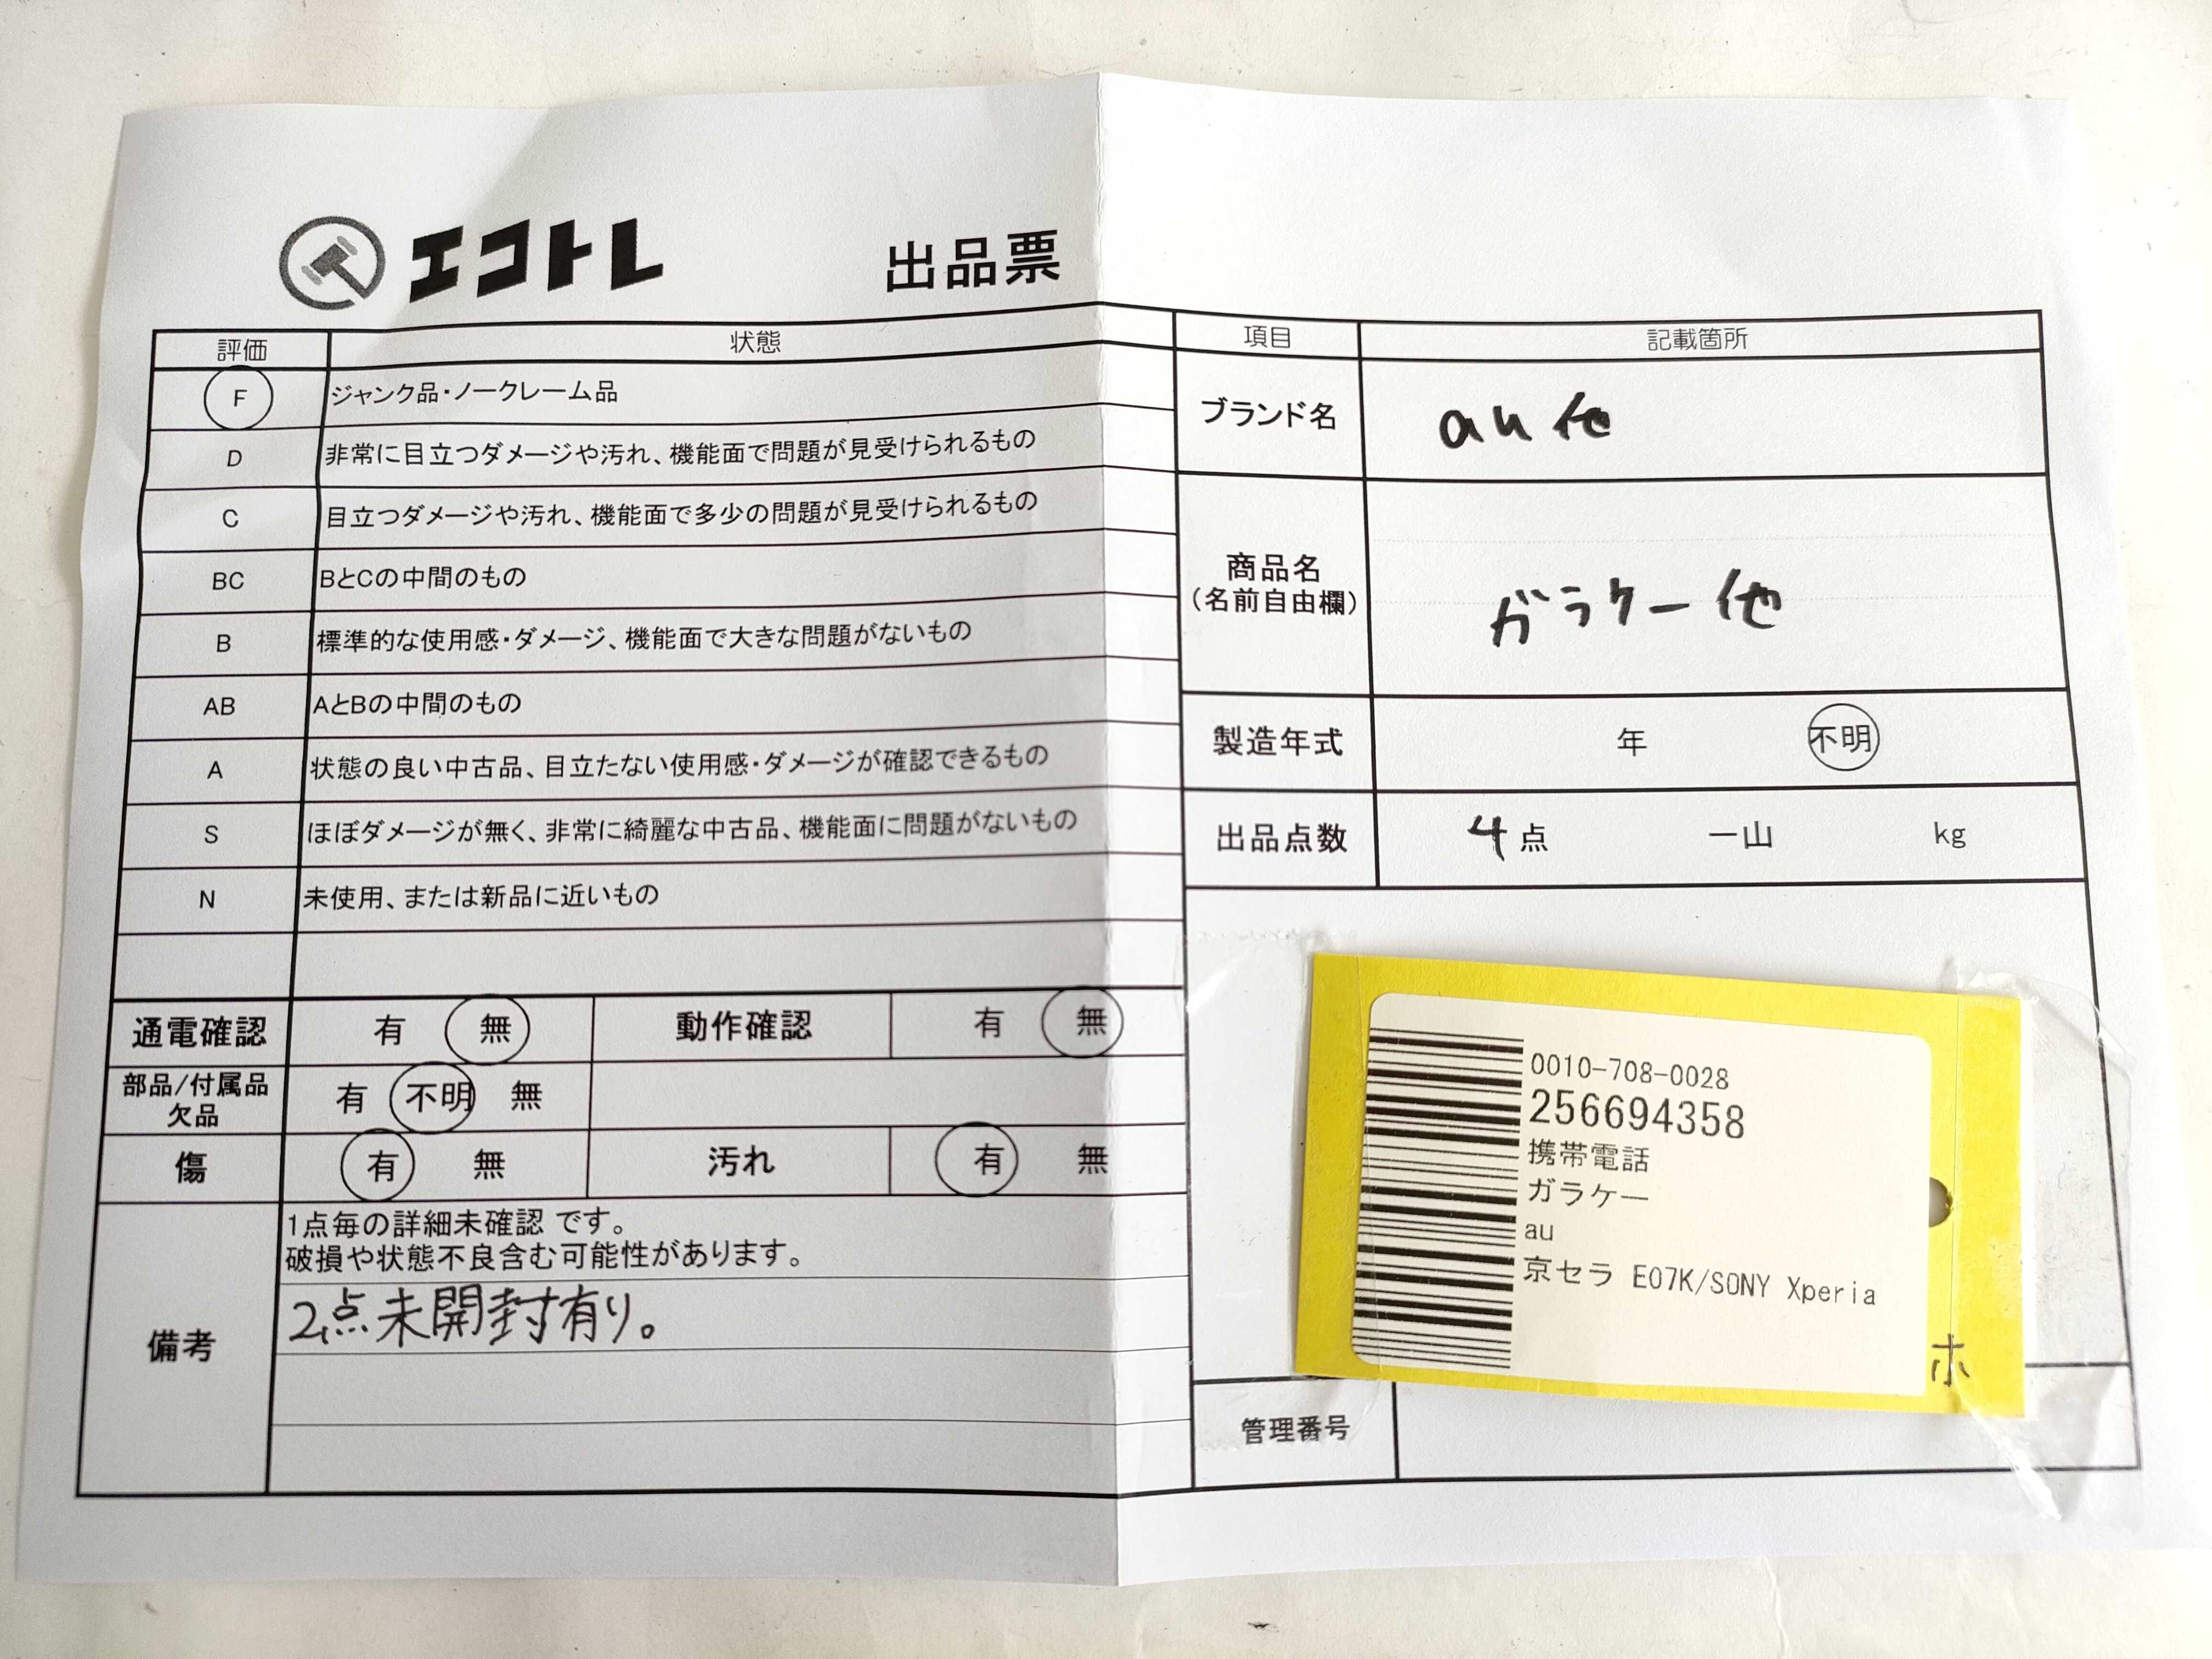 エコトレ 出品票
評価 状態
F ジャンク品・ノークレーム品
D 非常に目立つダメージや汚れ、機能面で問題が見受けられるもの
C 目立つダメージや汚れ、機能面で多少の問題が見受けられるもの
BC BとCの中間のもの
B 標準的な使用感・ダメージ、機能面で大きな問題がないもの
AB AとBの中間のもの
A 状態の良い中古品、目立たない使用感・ダメージが確認できるもの
S ほぼダメージが無く、非常に綺麗な中古品、機能面に問題がないもの
N 未使用、または新品に近いもの
通電確認 有 無 動作確認 有 無
部品/付属品
欠品 有 不明 無
傷 有 無 汚れ 有 無
備考
1点毎の詳細未確認 です。
破損や状態不良含む可能性があります。
2点未開封有り。
項目 記載箇所
ブランド名 au 他
商品名
(名前自由欄)
ガラケー 他
製造年式 年 不明
出品点数 4点 一山 kg
0010-708-0028
256694358
携帯電話
ガラケー
au
京セラ E07K/SONY Xperia
ホ
管理番号